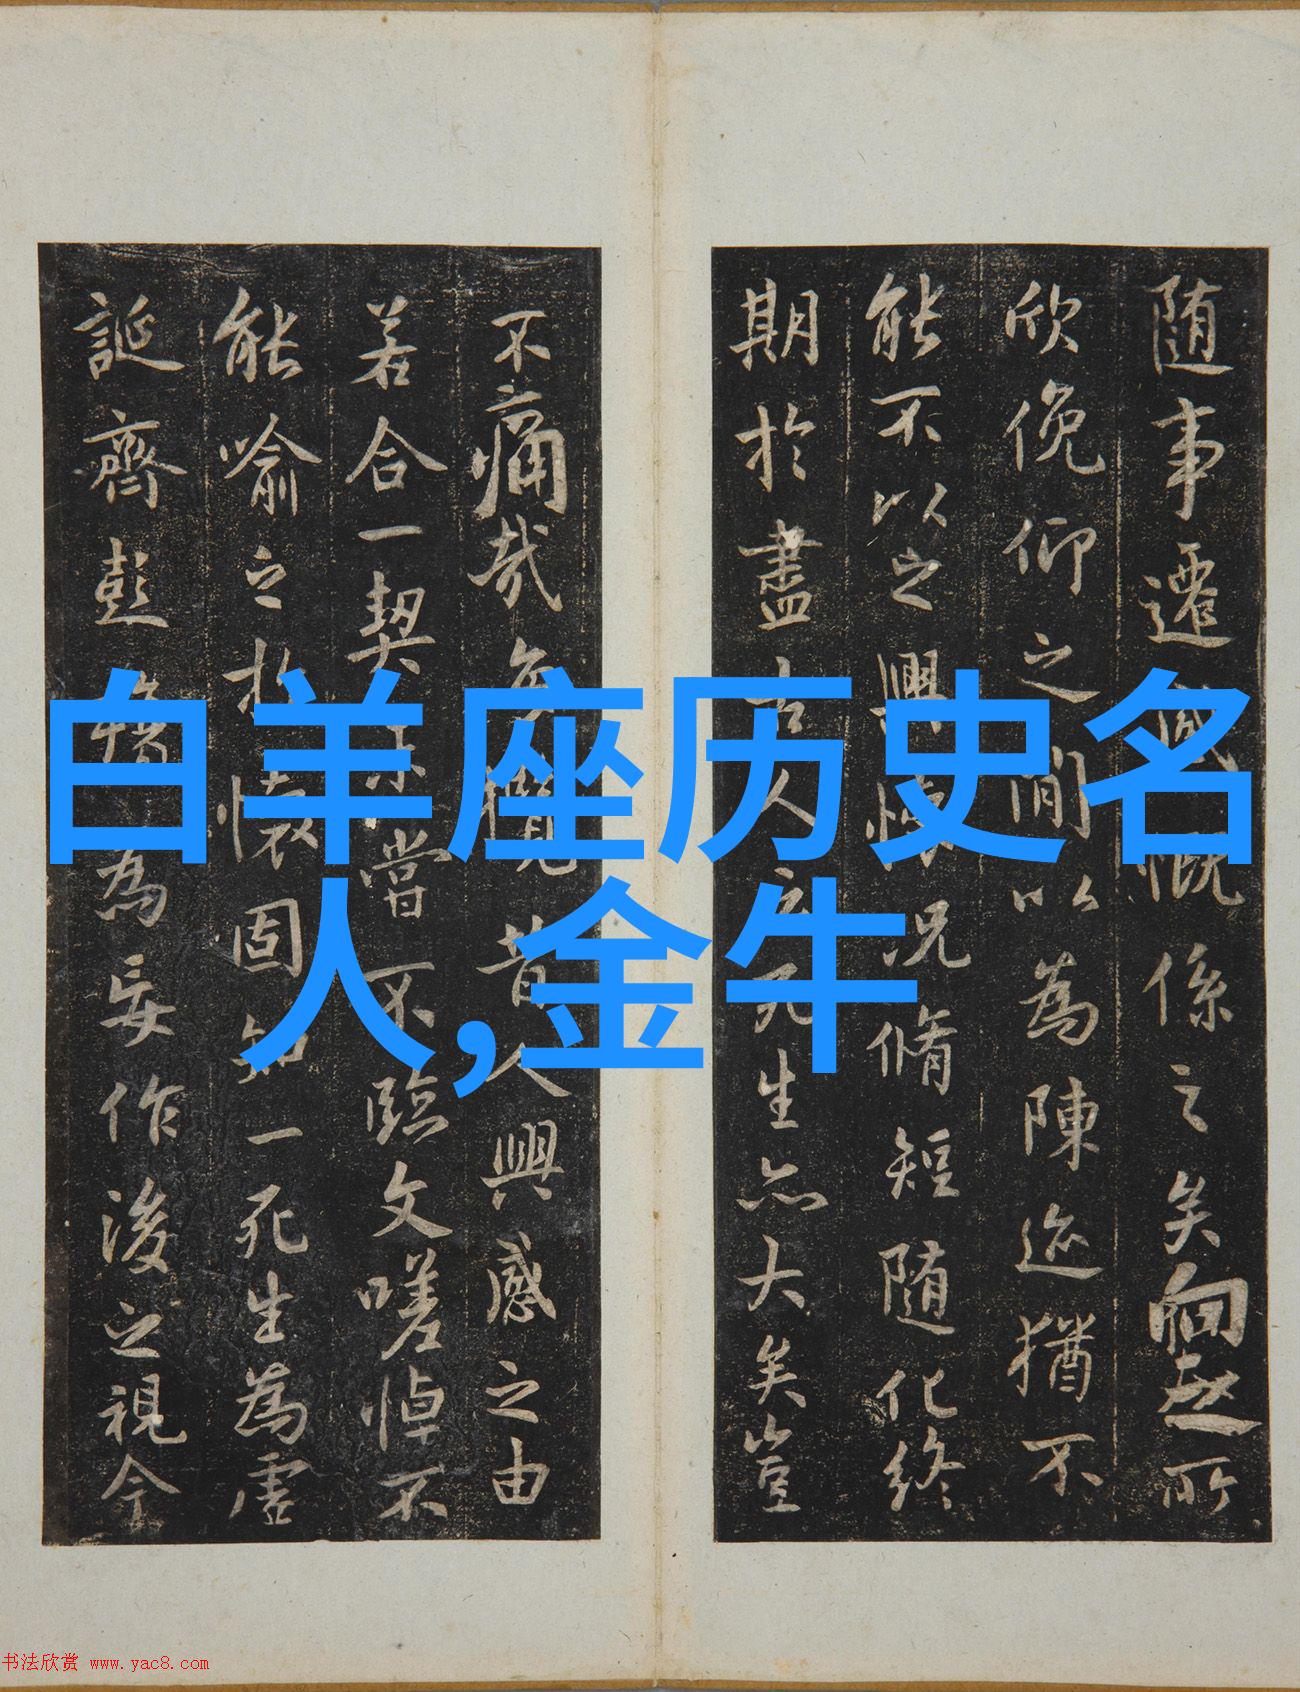 随事遷感慨係之矣向之所
欣俛仰之閒以為陳迹猶不
能不以之興懷况脩短随化終
期於盡古人云死生亦大矣豈
不痛哉每攬昔人興感之由
若合一契未嘗不臨文嗟悼不
能喻之於懷固知一死生為虛
誕齊彭殤為妄作後之視今
白羊座历史名
人,金牛
书法欣赏 www.yac8.com